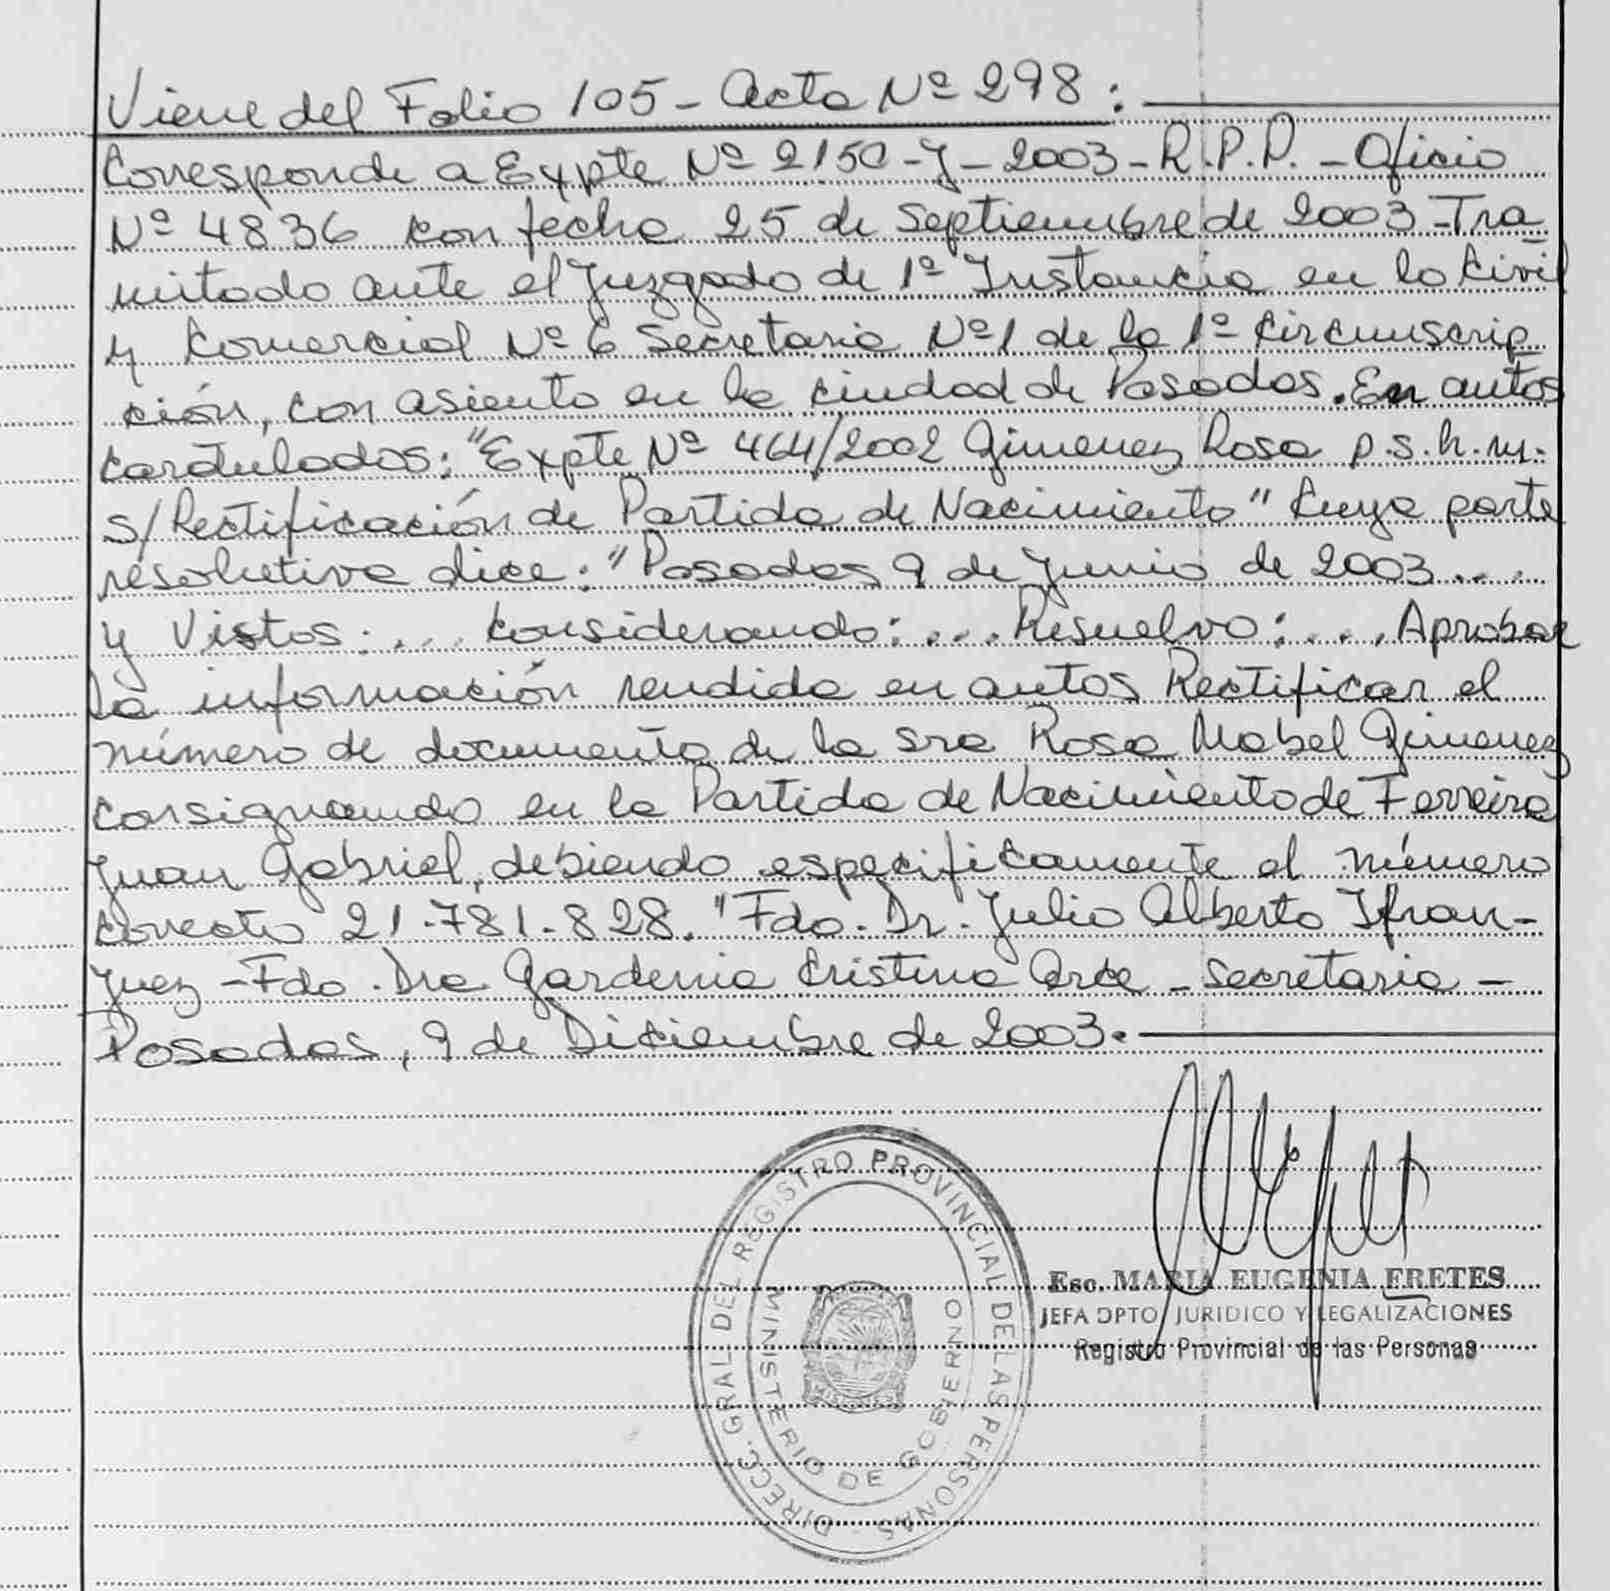 Viene del Folio 105 - Acta Nº 298:
Corresponde a Expte Nº 2150-J-2003-R.P.P. - Oficio
Nº 4836 con fecha 25 de Septiembre de 2003 - Tra
mitado ante el Juzgado de 1º Instancia en lo Civil
y Comercial Nº 6 Secretaria Nº 1 de la 1º Circunscrip
ción, con asiento en la ciudad de Posadas. En autos
caratulados: "Expte Nº 464/2002 Gimenez Rosa p.s.h.m.
s/Rectificación de Partida de Nacimiento" Cuya parte
resolutiva dice: "Posadas 9 de Junio de 2003....
y Vistos:... Considerando:... Resuelvo:... Aprobar
la información rendida en autos Rectificar el
número de documento de la sra Rosa Mabel Gimenez
consignando en la Partida de Nacimiento de Ferreira
Juan Gabriel, debiendo especificamente el número
correcto 21.781.828. "Fdo. Dr. Julio Alberto Ifran-
Juez - Fdo. Dra Gardenia Cristina Arce - Secretaria -
Posadas, 9 de Diciembre de 2003.
DIRECC. GRAL DEL REGISTRO PROVINCIAL DE LAS PERSONAS
MINISTERIO DE GOBIERNO
MISIONES
Esc. MARIA EUGENIA FRETES
JEFA DPTO JURIDICO Y LEGALIZACIONES
Registro Provincial de las Personas